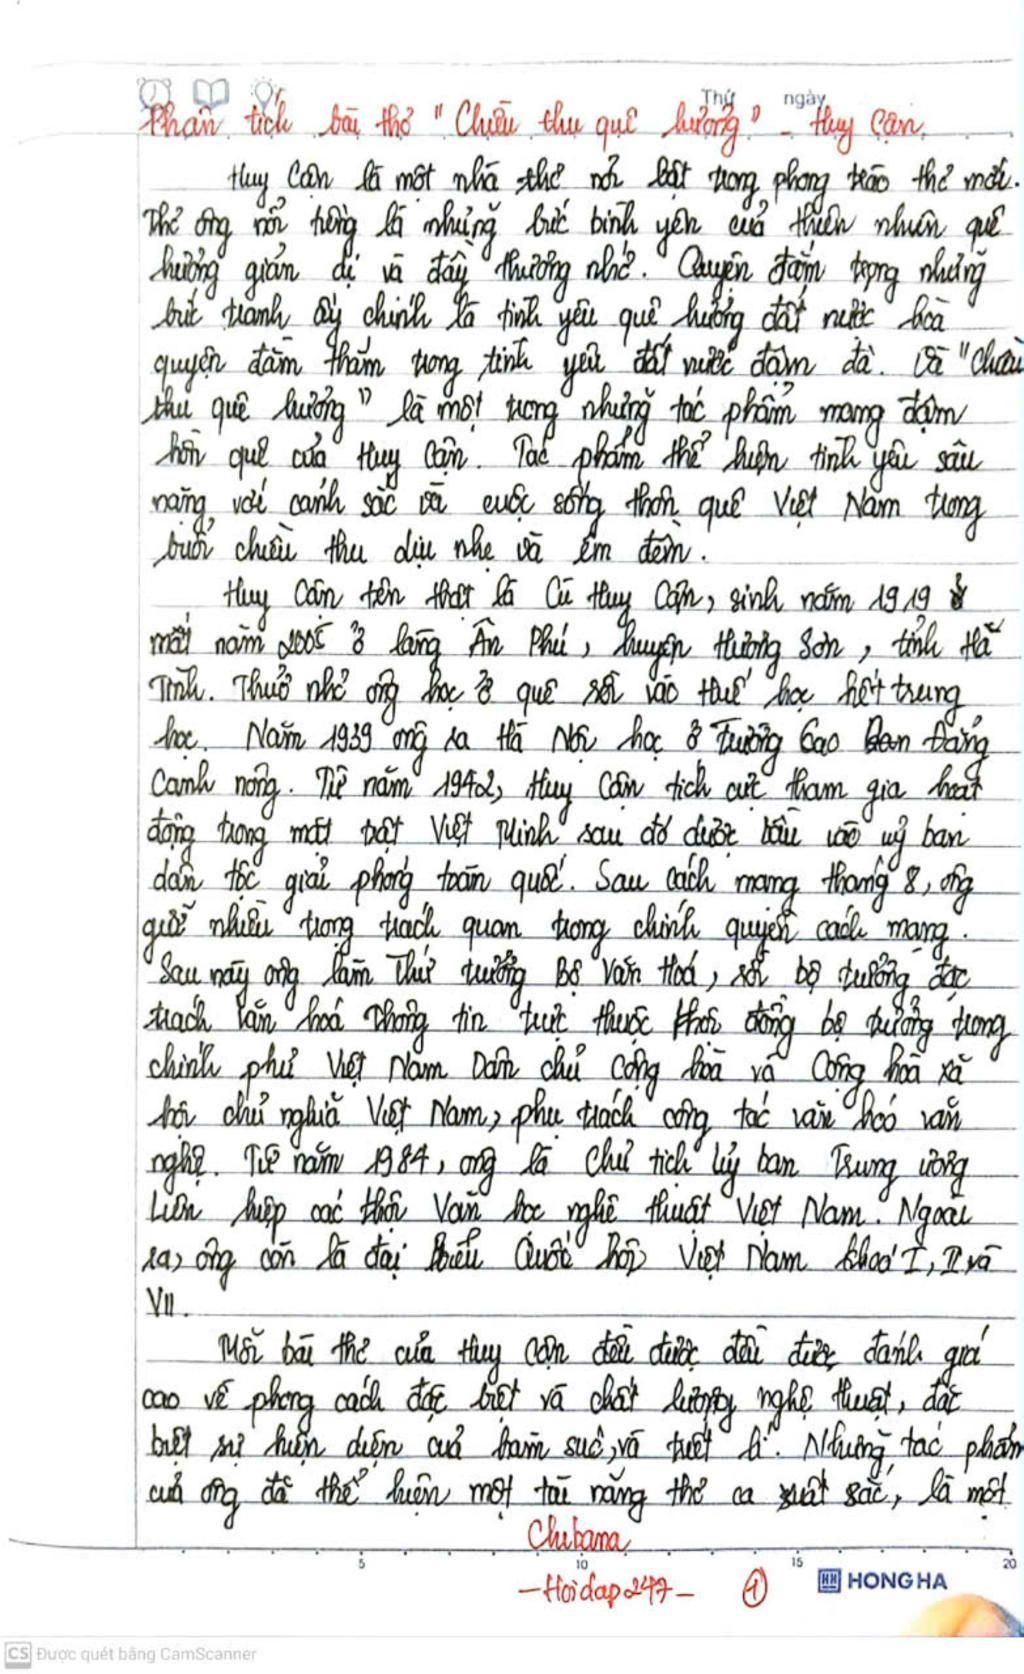 Thứ ngày
Phân tích bài thơ "Chiều thu quê hương" - Huy Cận.
Huy Cận là một nhà thơ nổi bật trong phong trào thơ mới.
Thơ ông nổi tiếng là những bức bình yên của thiên nhiên quê
hương giản dị và đầy thương nhớ. Quyện đắm trong những
bức tranh ấy chính là tình yêu quê hương đất nước hòa
quyện đằm thắm trong tình yêu đất nước đậm đà. Và "Chiều
thu quê hương" là một trong những tác phẩm mang đậm
hồn quê của Huy Cận. Tác phẩm thể hiện tình yêu sâu
nặng với cảnh sắc và cuộc sống thôn quê Việt Nam trong
buổi chiều thu dịu nhẹ và êm đềm.
Huy Cận tên thật là Cù Huy Cận, sinh năm 1919
mất năm 2005 ở làng Ân Phú, huyện Hương Sơn, tỉnh Hà
Tĩnh. Thuở nhỏ ông học ở quê rồi vào Huế học hết trung
học. Năm 1939 ông ra Hà Nội học ở Trường Cao Đẳng
Canh nông. Từ năm 1942, Huy Cận tích cực tham gia hoạt
động trong mặt trật Việt Minh sau đó được bầu vào uỷ ban
dân tộc giải phóng toàn quốc. Sau cách mạng tháng 8, ông
giữ nhiều trọng trách quan trong chính quyền cách mạng.
Sau này ông làm Thứ trưởng Bộ Văn Hoá, rồi bộ trưởng đặc
trách Văn hoá Thông tin trực thuộc Hội đồng bộ trưởng trong
chính phủ Việt Nam Dân chủ Cộng hòa và Cộng hòa xã
hội chủ nghĩa Việt Nam, phụ trách công tác văn hoá văn
nghệ. Từ năm 1984, ông là Chủ tịch Uỷ ban Trung ương
Liên hiệp các Hội Văn học nghệ thuật Việt Nam. Ngoài
ra, ông còn là đại biểu Quốc hội Việt Nam khoá I, II và
VII.
Mỗi bài thơ của Huy Cận đều được đều được đánh giá
cao về phong cách đặc biệt và chất lượng nghệ thuật, đặc
biệt sự hiện diện của hàm súc, và triết lí. Những tác phẩm
của ông đã thể hiện một tài năng thơ ca xuất sắc, là một
Chibana
5 10 15 20
-Hoidap247- 1
HH HONG HA
CS Được quét bằng CamScanner